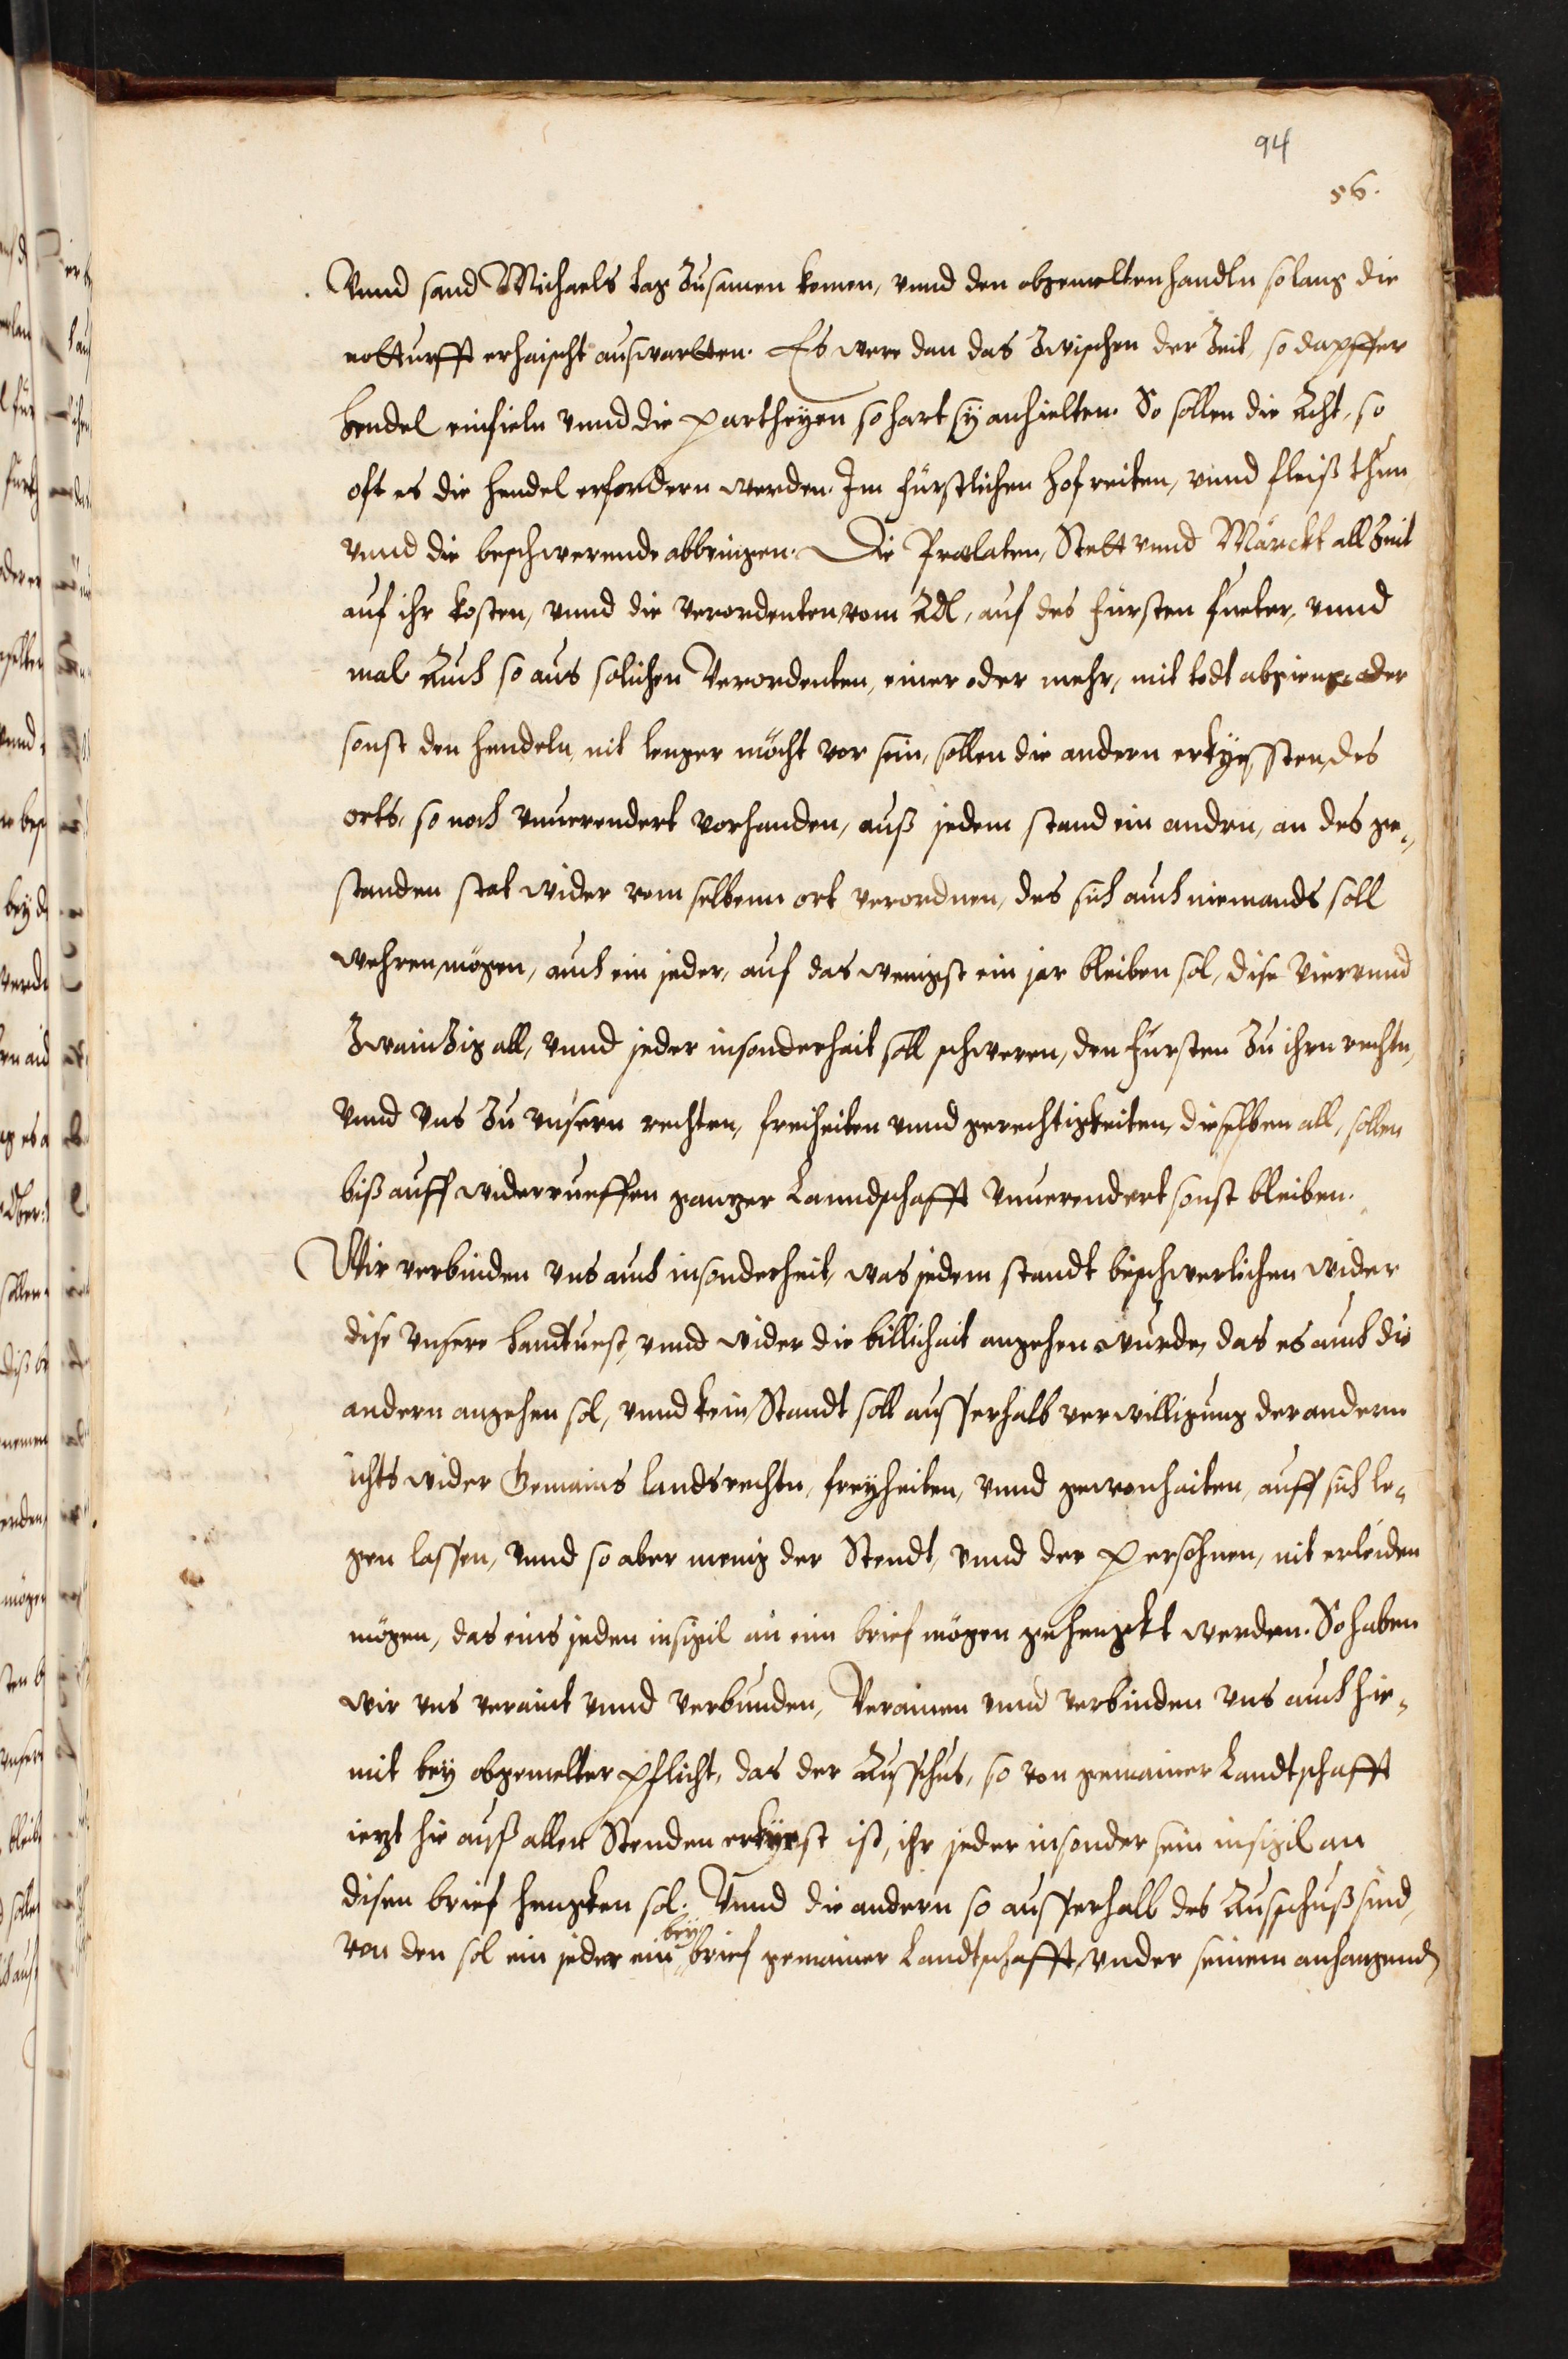 94
56.
Vnnd sand Michaels tag Zusamen komen, vnnd den obgemelten handln so lang die
notturfft erhaischt auswartten. Es were dan das Zwischen der Zeit, so dapffer
hendel einfieln vnnd die partheyen so hart sy anhielten. So sollen die Acht, so
oft es die hendel erfordern werden. Im fürstlichen hof reiten, vnnd fleiß thun
vnnd die beschwerende abbringen. Die Praelaten, Stett vnnd Märckt all Zeit
auf ihr kosten, vnnd die verordenten vom Adl, auf des fürsten fueter, vnnd
mal Auch so aus solichen Verordenten, einer oder mehr, mit todt abgieng, oder
sonst den hendeln, nit lenger möcht vor sein, sollen die andern erkyssten, des
orts, so noch vnuerendert vorhanden, auß jedem stand ein andrn, an des ge-
standen stat wider vom selbenn ort verordnen, des sich auch niemands soll
wehren mögen, auch ein jeder, auf das wenigst ein jar bleiben sol, dise Viervnnd
Zwainzig all, vnnd jeder insonderhait soll schweren, den fürsten Zu ihrn rechtn,
Vnnd Vns Zu vnsern rechten, freiheiten vnnd gerechtigkeiten, dieselben all, sollen
biß auff widerrueffen gantzer Lanndschafft Vnuerendert sonst bleiben.
Wir verbinden vns auch insonderheit, was jedem standt beschwerlichen wider
dise Vnsere handtuest, vnnd wider die billichait angehen wurde, das es auch die
andern angehen sol, vnnd kein Standt soll ausserhalb verwilligung der andern
ichts wider Gemains landsrechtn, freyheiten, vnnd gewonhaiten, auff sich le-
gen lassen, Vnnd so aber menig der Stendt, vnnd der persohnen, nit erleiden
mögen, das eins jeden insigil an ein brief mögen gehengkt werden. So haben
wir vns veraint vnnd Verbunden, Verainen vnnd verbinden vns auch hie-
mit bey obgemelter pflicht, das der Ausschus, so von gemainer Landtschafft
iezt hie auß allen Stenden erkyest ist, ihr jeder insonder sein insigil an
disen brief hengken sol. Vnnd die andern so ausserhalb des Ausschuß sind,
von den sol ein jeder ein bey brief gemainer Landtschafft, vnder seinem anhangend